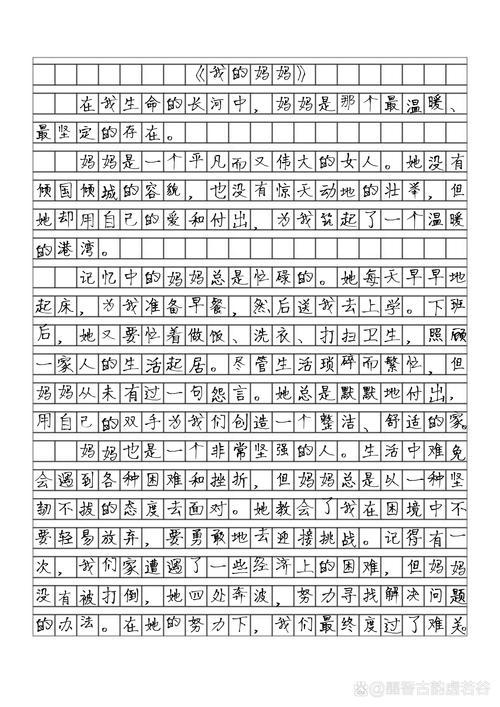 《我的妈妈》
在我生命的长河中，妈妈是那个最温暖、
最坚定的存在。
妈妈是一个平凡而又伟大的女人。她没有
倾国倾城的容貌，也没有惊天动地的壮举，但
她却用自己的爱和付出，为我筑起了一个温暖
的港湾。
记忆中的妈妈总是忙碌的。她每天早早地
起床，为我准备早餐，然后送我去上学。下班
后，她又要忙着做饭、洗衣、打扫卫生，照顾
一家人的生活起居。尽管生活琐碎而繁忙，但
妈妈从未有过一句怨言。她总是默默地付出，
用自己的双手为我们创造一个整洁、舒适的家。
妈妈也是一个非常坚强的人。生活中难免
会遇到各种困难和挫折，但妈妈总是以一种坚
韧不拔的态度去面对。她教会了我在困境中不
要轻易放弃，要勇敢地去迎接挑战。记得有一
次，我们家遭遇了一些经济上的困难，但妈妈
没有被打倒，她四处奔波，努力寻找解决问题
的办法。在她的努力下，我们最终度过了难关。